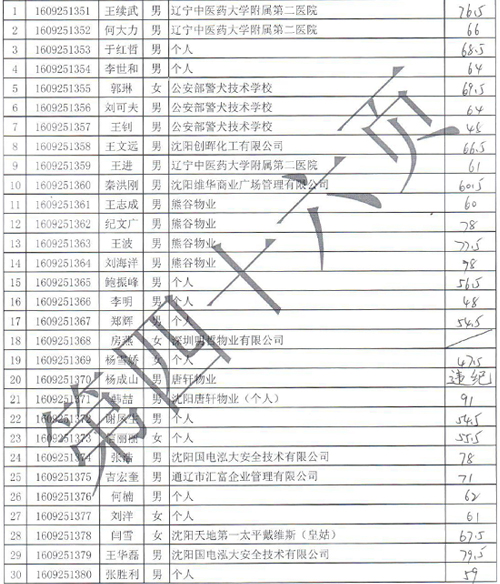 1 1609251351 王续武 男 辽宁中医药大学附属第二医院 76.5
2 1609251352 何大力 男 辽宁中医药大学附属第二医院 66
3 1609251353 于红哲 男 个人 68.5
4 1609251354 李世和 男 个人 64
5 1609251355 郭琳 女 公安部警犬技术学校 69.5
6 1609251356 刘可夫 男 公安部警犬技术学校 64
7 1609251357 王钊 男 公安部警犬技术学校 45
8 1609251358 王文远 男 沈阳创晖化工有限公司 66.5
9 1609251359 王进 男 辽宁中医药大学附属第二医院 61
10 1609251360 秦洪刚 男 沈阳维华商业广场管理有限公司 60.5
11 1609251361 王志成 男 熊谷物业 60
12 1609251362 纪文广 男 熊谷物业 78
13 1609251363 王波 男 熊谷物业 77.5
14 1609251364 刘海洋 男 熊谷物业 98
15 1609251365 鲍振峰 男 个人 56.5
16 1609251366 李明 男 个人 48
17 1609251367 郑辉 男 个人 54.5
18 1609251368 房燕 女 深圳明哲物业有限公司
19 1609251369 杨雪娇 女 个人 47.5
20 1609251370 杨成山 男 唐轩物业 违纪
21 1609251371 韩喆 男 沈阳唐轩物业（个人） 91
22 1609251372 谢 男 个人 54.5
23 1609251373 丽丽 女 个人 55.5
24 1609251374 张浩 男 沈阳国电泓大安全技术有限公司 78
25 1609251375 吉宏奎 男 通辽市汇富企业管理有限公司 71
26 1609251376 何楠 男 个人 62
27 1609251377 刘洋 女 个人 61
28 1609251378 闫雪 女 沈阳天地第一太平戴维斯（皇姑） 67.5
29 1609251379 王华磊 男 沈阳国电泓大安全技术有限公司 79.5
30 1609251380 张胜利 男 个人 59
第四十六页